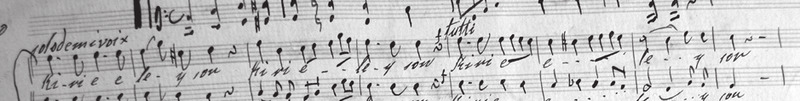 tutti
solo demi voix
Ki-ri-e e le-y son Ki ri e - - le-y son Ki-ri e e - - - le - - y son